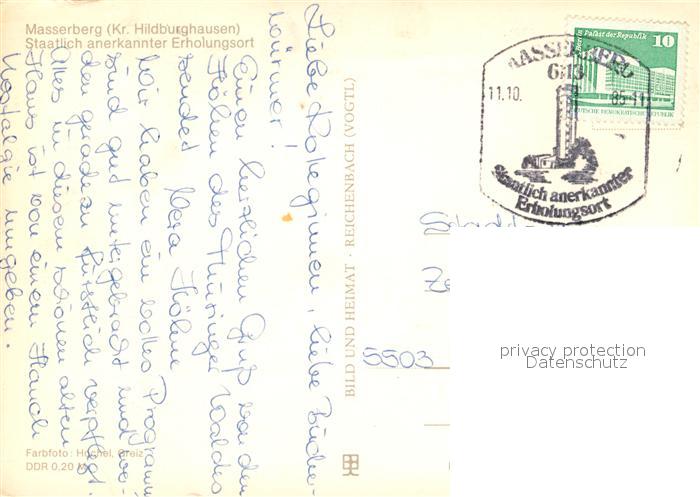 Masserberg (Kr. Hildburghausen)
Staatlich anerkannter Erholungsort
Liebe Kolleginnen, liebe Bücher-
würmer!
Einen herzlichen Gruß von den
Höhen des Thüringer Waldes
sendet Vera Höhne
Wir haben ein tolles Programm
sind gut untergebracht und wer-
den geradezu fürstlich verpflegt.
Alles in diesem schönen alten
Haus ist von einem Hauch
Nostalgie umgeben.
Farbfoto: Huschel, Greiz
DDR 0,20 M
BILD UND HEIMAT · REICHENBACH (VOGTL)
Berlin Palast der Republik
10
DEUTSCHE DEMOKRATISCHE REPUBLIK
MASSERBERG
6113
11.10. 85-11
staatlich anerkannter
Erholungsort
Stadt-
5503
privacy protection
Datenschutz